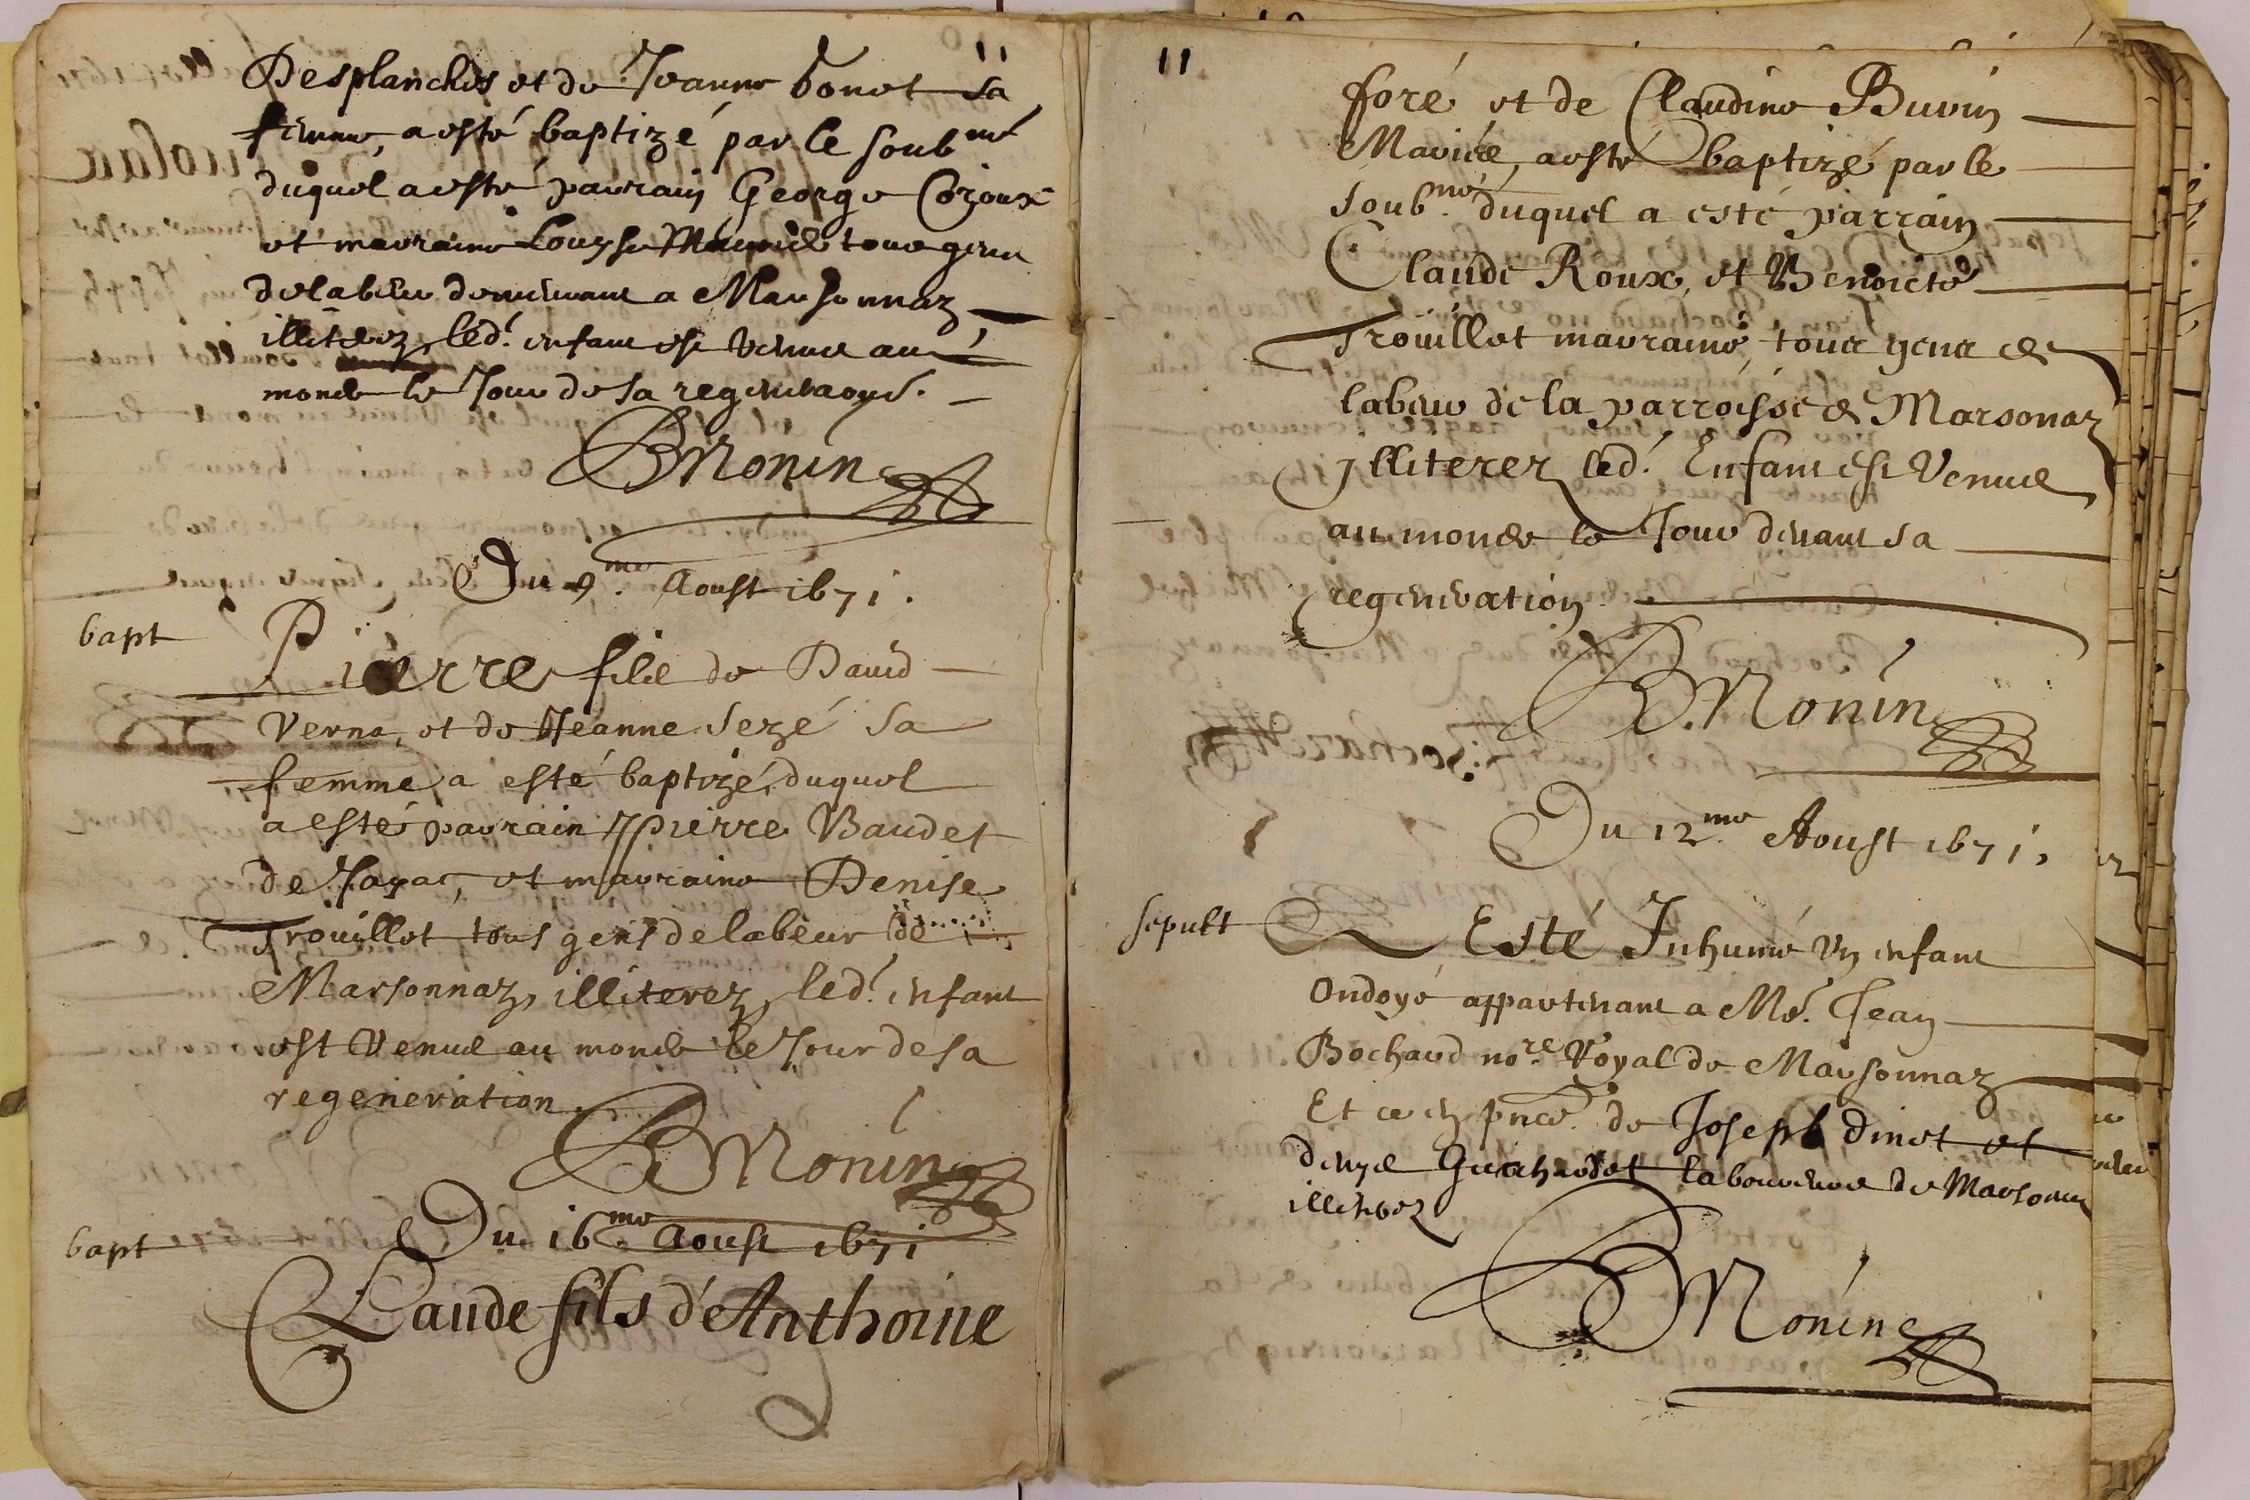 11
Desplanches et de Jeanne bonet sa
femme, a esté baptizé par le soub.mé
duquel a esté parrain George Cozoux
et marraine Louyse tous gens
de labeur demeurant a Marsonnaz
illiterez, led.t enfant est venue au
monde le Jour de sa regeneraon.
BMonin
Du 9.me Aoust 1671.
bapt
Pierre filz de David
Verne, et de Jeanne Sezé sa
femme, a esté baptizé, duquel
a esté parrain Pierre Baudet
de Jayac, et marraine Denise
Trouillet tous gens de labeur de
Marsonnaz, illiterez, led.t enfant
est Venue au monde le Jour de sa
regeneration.
BMonin
bapt
Du 16.me Aoust 1671
Claude fils d'Anthoine
11
foré et de Claudine Buvin
Mariée, a esté baptizé par le
soub.mé duquel a esté parrain
Claude Roux, et Benoicte
Trouillet marraine, tous gens de
labeur de la parroisse de Marsonaz
Illiterez led.t Enfant est Venue
au monde le Jour devant sa
regeneration.
B.Monin
Du 12.me Aoust 1671.
sepult
A Esté Inhumé Un enfant
Ondoyé appartenant a Me. Jean
Bochard no.re Royal de Marsonnaz
Et ce en pnce de Joseph dinet et
denys Guichardet laboureurs de Marsonnaz
illiterez
BMonin